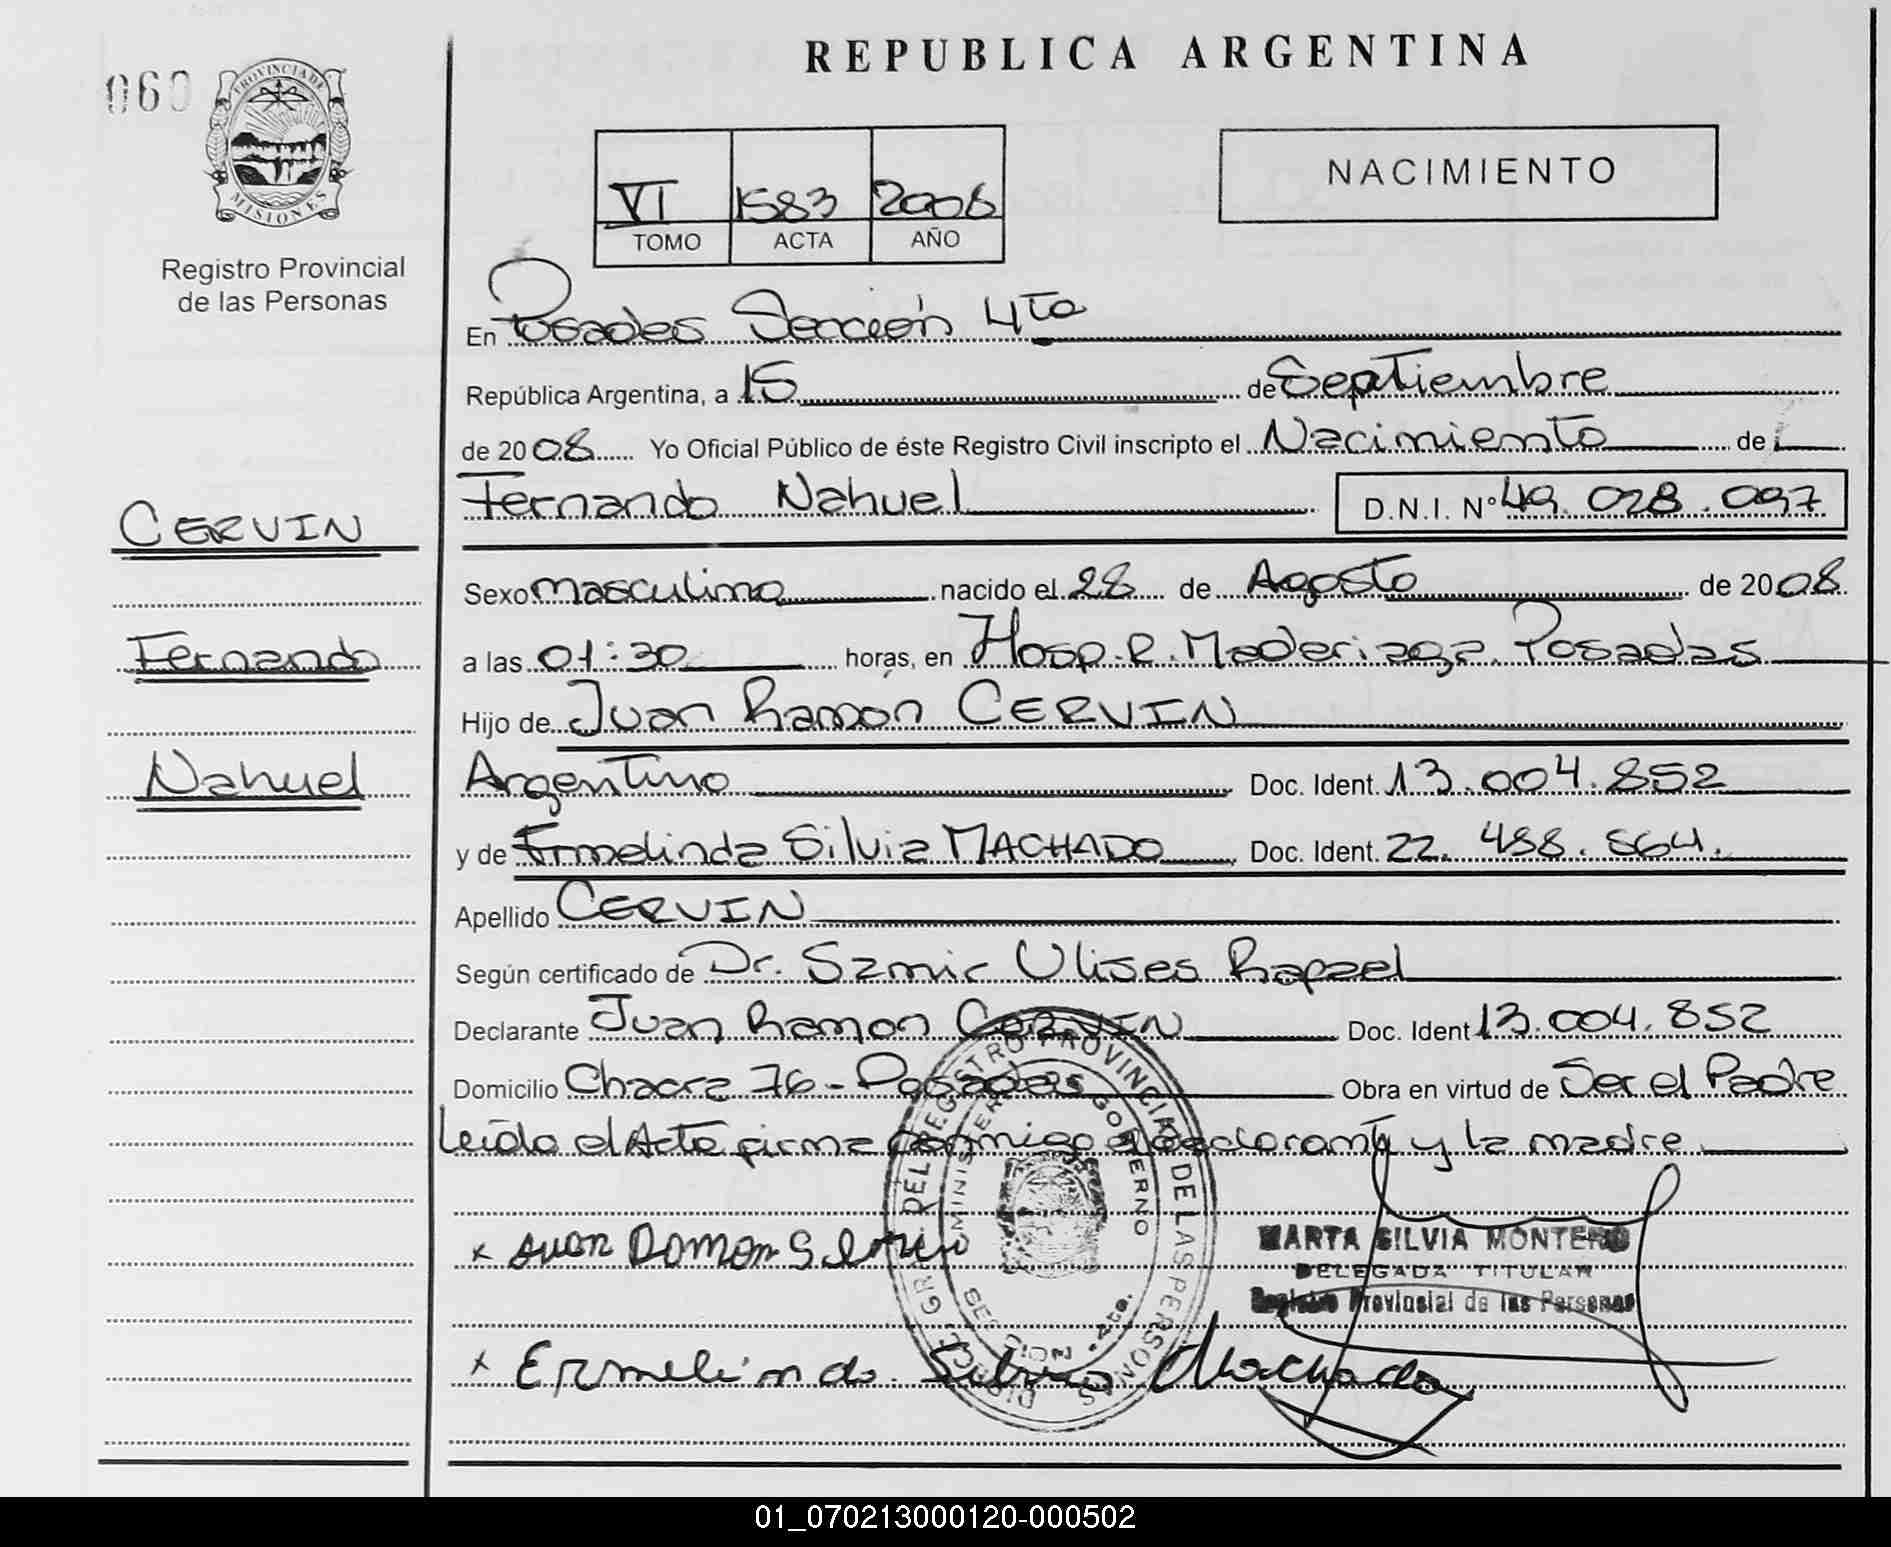 REPUBLICA ARGENTINA
060
PROVINCIA DE
MISIONES
Registro Provincial
de las Personas
VI 1583 2008
TOMO ACTA AÑO
NACIMIENTO
En Posadas Sección 4ta
República Argentina, a 15 de Septiembre
de 2008 Yo Oficial Público de éste Registro Civil inscripto el Nacimiento de
Fernando Nahuel D.N.I. Nº 49.028.097
CERVIN
Fernando
Nahuel
Sexo masculino nacido el 28 de Agosto de 2008
a las 01:30 horas, en Hosp. R. Madariaga. Posadas
Hijo de Juan Ramón CERVIN
Argentino Doc. Ident. 13.004.852
y de Ermelinda Silvia MACHADO Doc. Ident. 22.488.564.
Apellido CERVIN
Según certificado de Dr. Szmic Ulises Rafael
Declarante Juan Ramon CERVIN Doc. Ident 13.004.852
Domicilio Chacra 76 - Posadas Obra en virtud de Ser el Padre
Leída el Acta firma conmigo el declarante y la madre
DEL REGISTRO PROVINCIAL DE LAS PERSONAS
MINISTERIO DE GOBIERNO
x Juan Ramon
MARTA SILVIA MONTERO
DELEGADA TITULAR
Registro Provincial de las Personas
x Ermelinda Silvia Machado
01_070213000120-000502